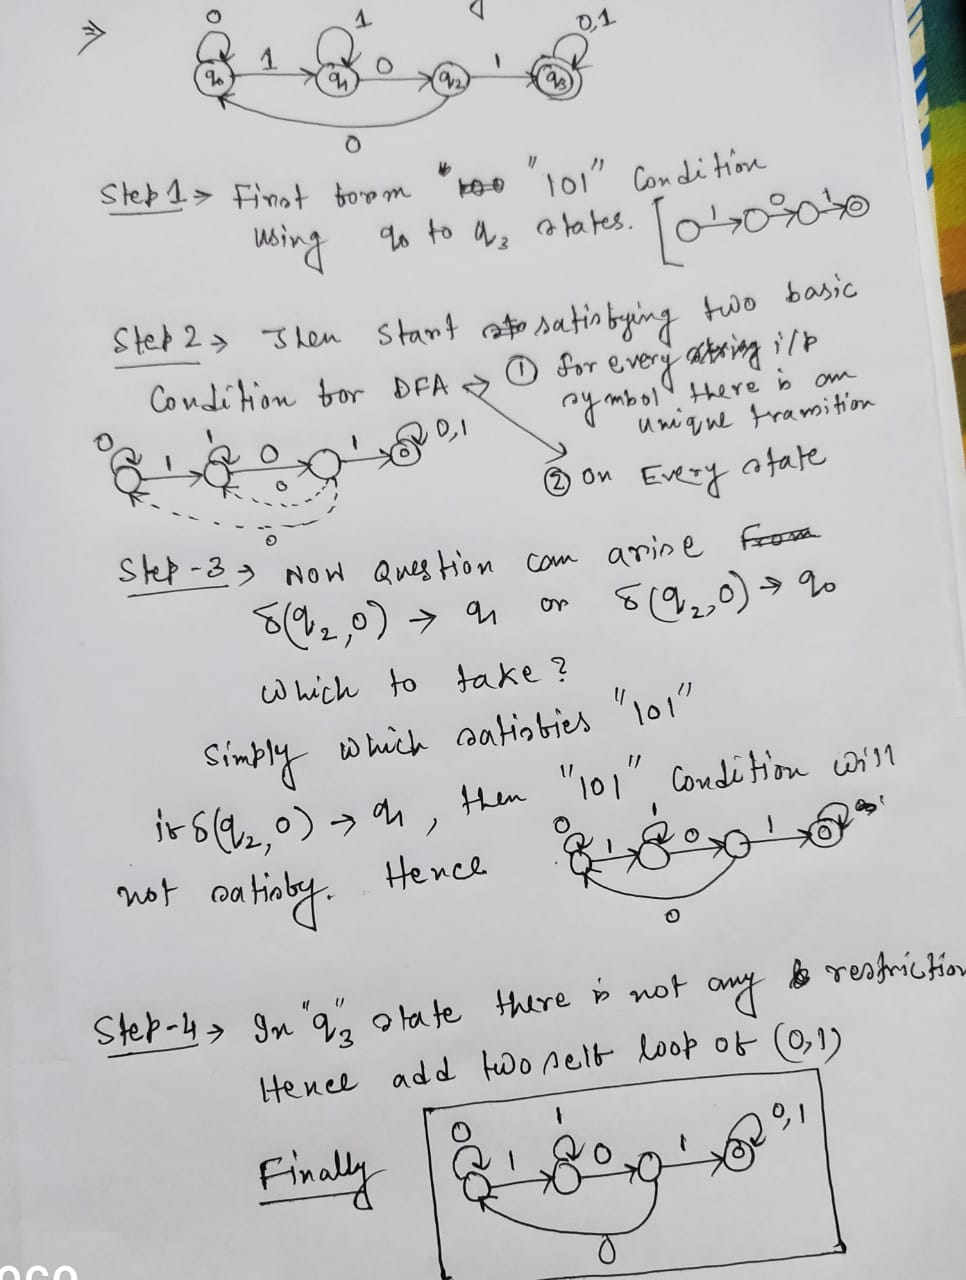 ⇒
0 1 0,1
q₀ 1 q₁ 0 q₂ 1 q₃
0
Step 1 → First form "101" Condition
using q₀ to q₃ states. [ 1 0 1
Step 2 → Then start satisfying two basic
Condition for DFA → ① for every i/p
symbol there is an
unique transition
② on Every state
0 1 1 0 1 0,1
0
0
Step-3 → NOW Question can arise
δ(q₂,0) → q₁ or δ(q₂,0) → q₀
which to take?
Simply which satisfies "101"
if δ(q₂,0) → q₁, then "101" Condition will
not satisfy. Hence
0 1 1 0 1
0
Step-4 → In "q₃" state there is not any restriction
Hence add two self loop of (0,1)
Finally
0 1 1 0 1 0,1
0